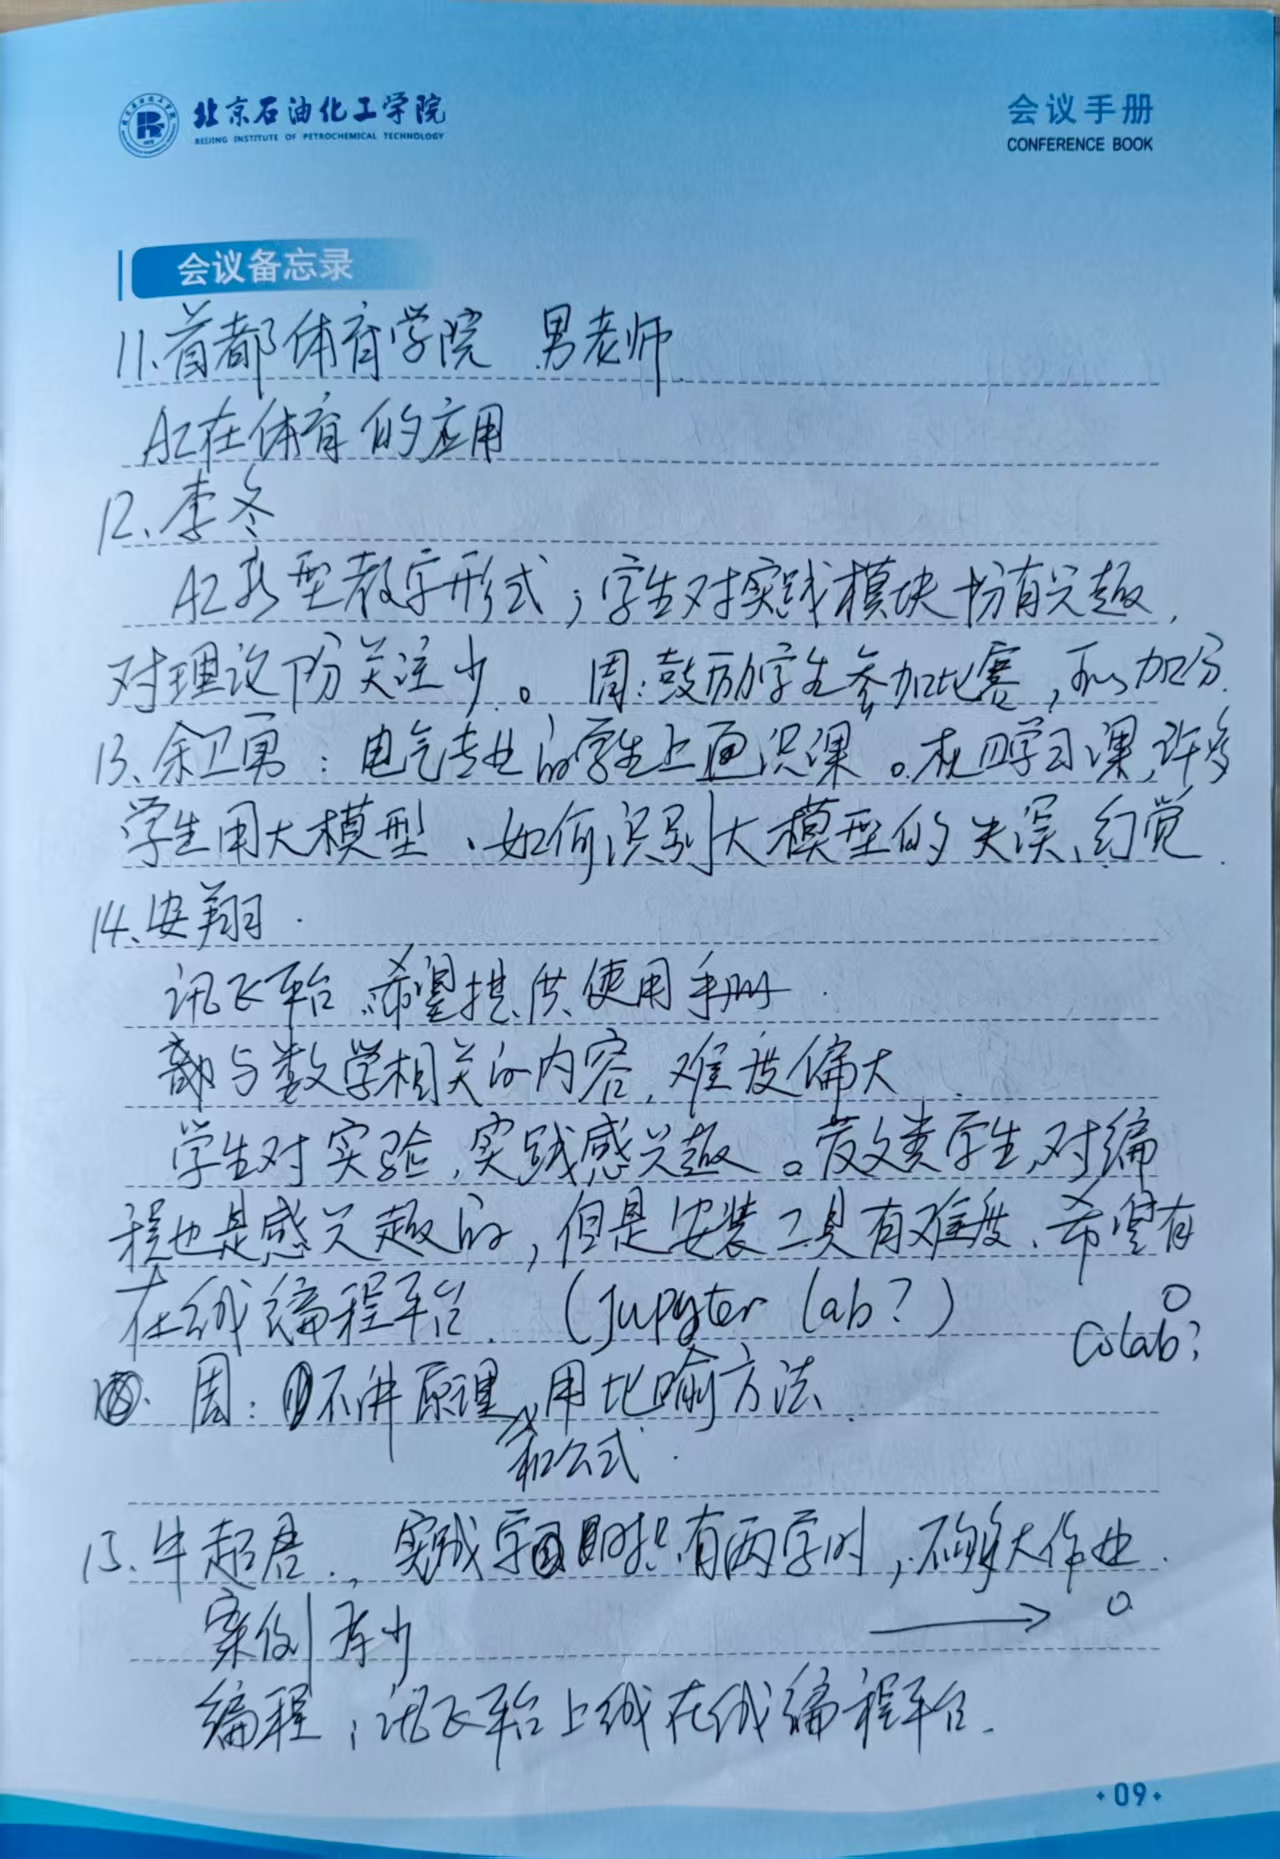 北京石油化工学院
BEIJING INSTITUTE OF PETROCHEMICAL TECHNOLOGY
会议手册
CONFERENCE BOOK
会议备忘录
11.首都体育学院 男老师
AI在体育的应用
12、李冬
AI新型教学形式；学生对实践模块十分有兴趣，
对理论部分关注少。周：鼓励学生参加比赛，可以加分.
13、余卫勇：电气专业的学生上通识课。机器学习课，许多
学生用大模型、如何识别大模型的失误、幻觉.
14、安翔.
讯飞平台，希望提供使用手册.
部与数学相关的内容，难度偏大.
学生对实验，实践感兴趣。文类学生，对编
程也是感兴趣的，但是安装工具有难度、希望有
在线编程平台. (Jupyter lab?)
Colab?
周：①不讲原理，用比喻方法.
和公式.
15、牛超君.，实践学时只有两学时，不够大作业.
案例有少
编程；讯飞平台上线在线编程平台.
09